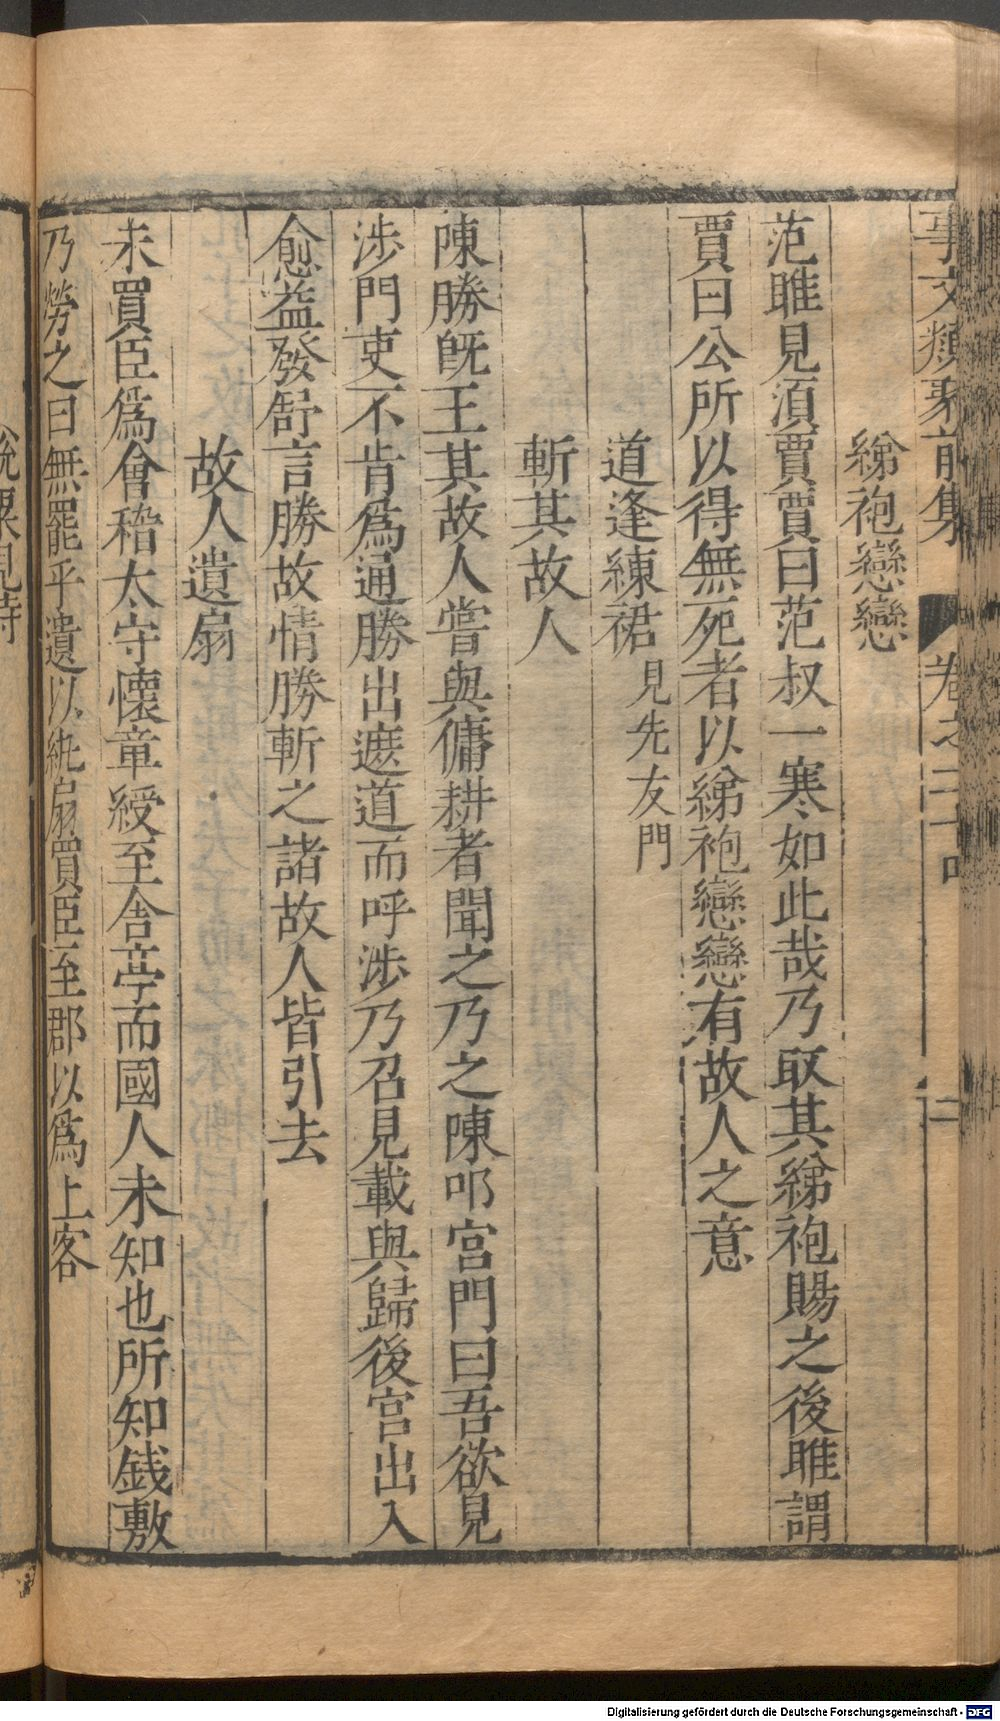 事文類聚前集 卷之二十 二
綈袍戀戀
范雎見湏賈賈曰范叔一寒如此哉乃取其綈袍賜之後雎謂
賈曰公所以得無死者以綈袍戀戀有故人之意
道逢練裙見先友門
斬其故人
陳勝旣王其故人嘗與傭耕者聞之乃之陳叩宮門曰吾欲見
涉門吏不肯爲通勝出遮道而呼涉乃召見載與歸後宮出入
愈益發舒言勝故情勝斬之諸故人皆引去
故人遺扇
未買臣爲會稽太守懷章綬至舍亭而國人未知也所知銭敷
乃勞之曰無罷乎遺以紈扇買臣至郡以爲上客
Digitalisierung gefördert durch die Deutsche Forschungsgemeinschaft - DFG